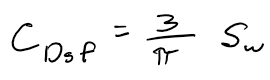 C_Dsp = 3/π S_w